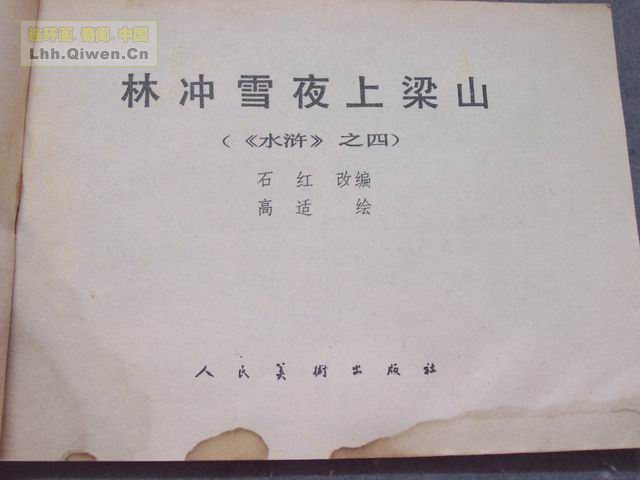 连环画.奇闻.中国
Lhh.Qiwen.Cn
林冲雪夜上梁山
(《水浒》之四)
石红 改编
高适 绘
人民美術出版社